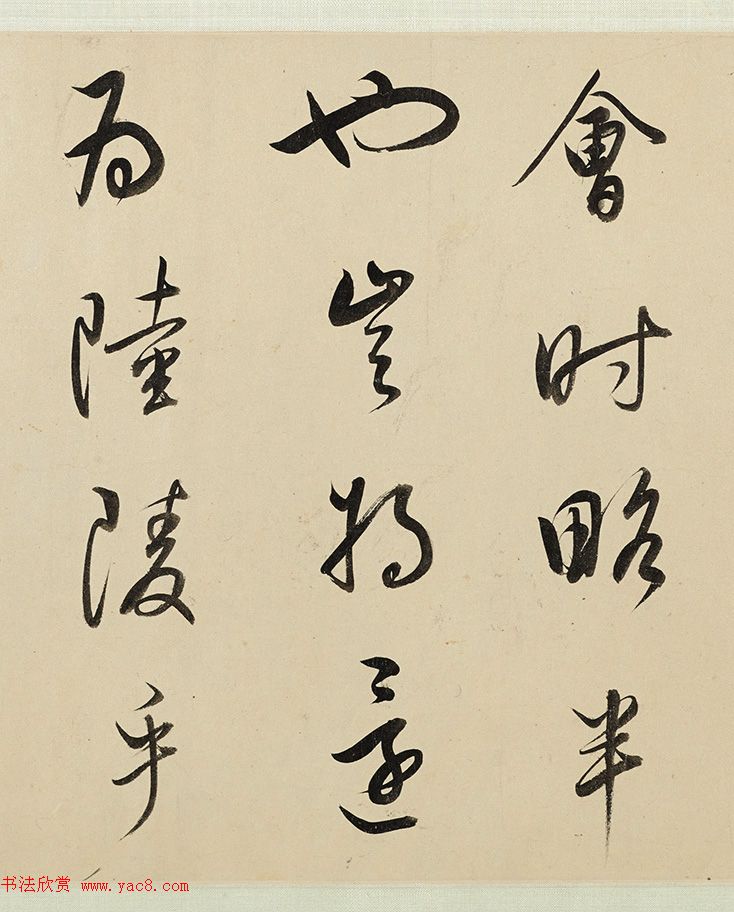 會時略半
也豈將還
為陸陵乎
书法欣赏 www.yac8.com